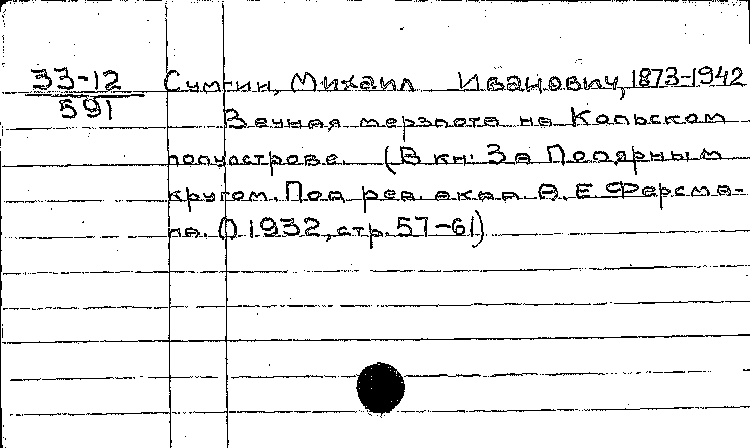 33-12 Сумгин, Михаил Иванович, 1873-1942
591
Вечная мерзлота на Кольском
полуострове. (В кн: За Полярным
кругом. Под ред. акад. А. Е. Ферсма-
на. Л 1932, стр. 57-61)